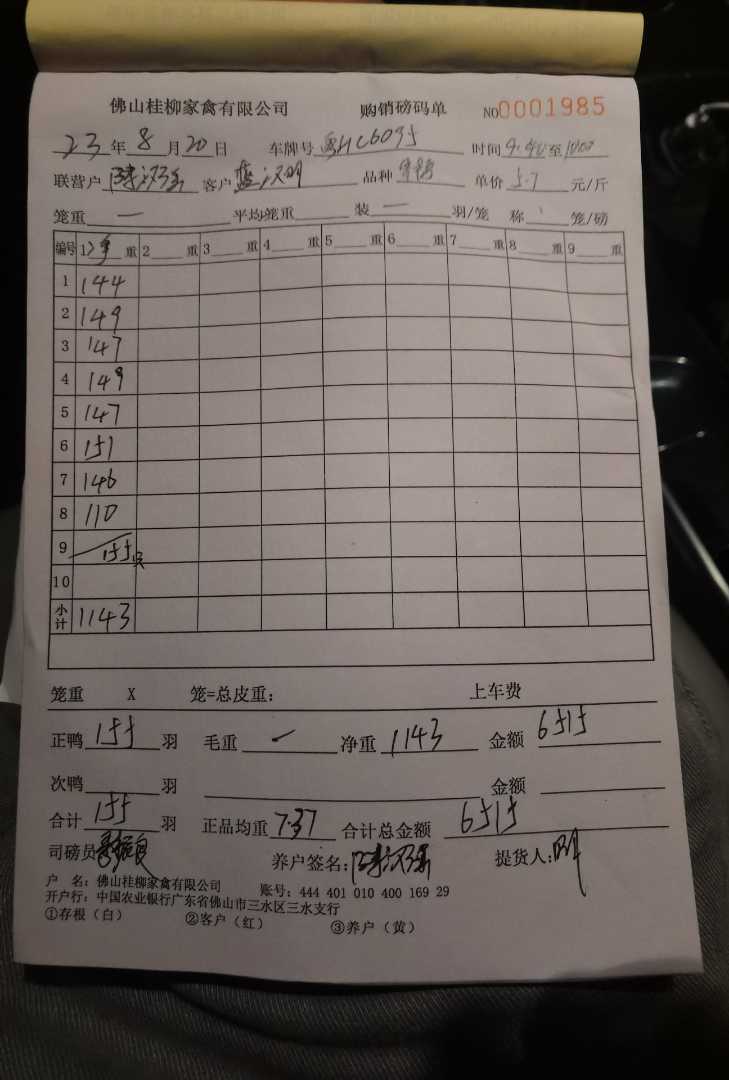 佛山桂柳家禽有限公司 购销磅码单 NO0001985
23年8月20日 车牌号粤HC6035 时间9.40至1000
联营户 客户 蓝汉明 品种 单价5.7元/斤
笼重 一 平均笼重 装 一 羽/笼 称 笼/磅
编号 1 净重 2 重 3 重 4 重 5 重 6 重 7 重 8 重 9 重
1 144
2 149
3 147
4 149
5 147
6 151
7 146
8 110
9 155只
10
小计 1143
笼重 X 笼=总皮重: 上车费
正鸭 155 羽 毛重 一 净重 1143 金额 6515
次鸭 羽 金额
合计 155 羽 正品均重 7.37 合计总金额 6515
司磅员 养户签名: 提货人:明
户 名: 佛山桂柳家禽有限公司 账号: 444 401 010 400 169 29
开户行: 中国农业银行广东省佛山市三水区三水支行
①存根（白） ②客户（红） ③养户（黄）